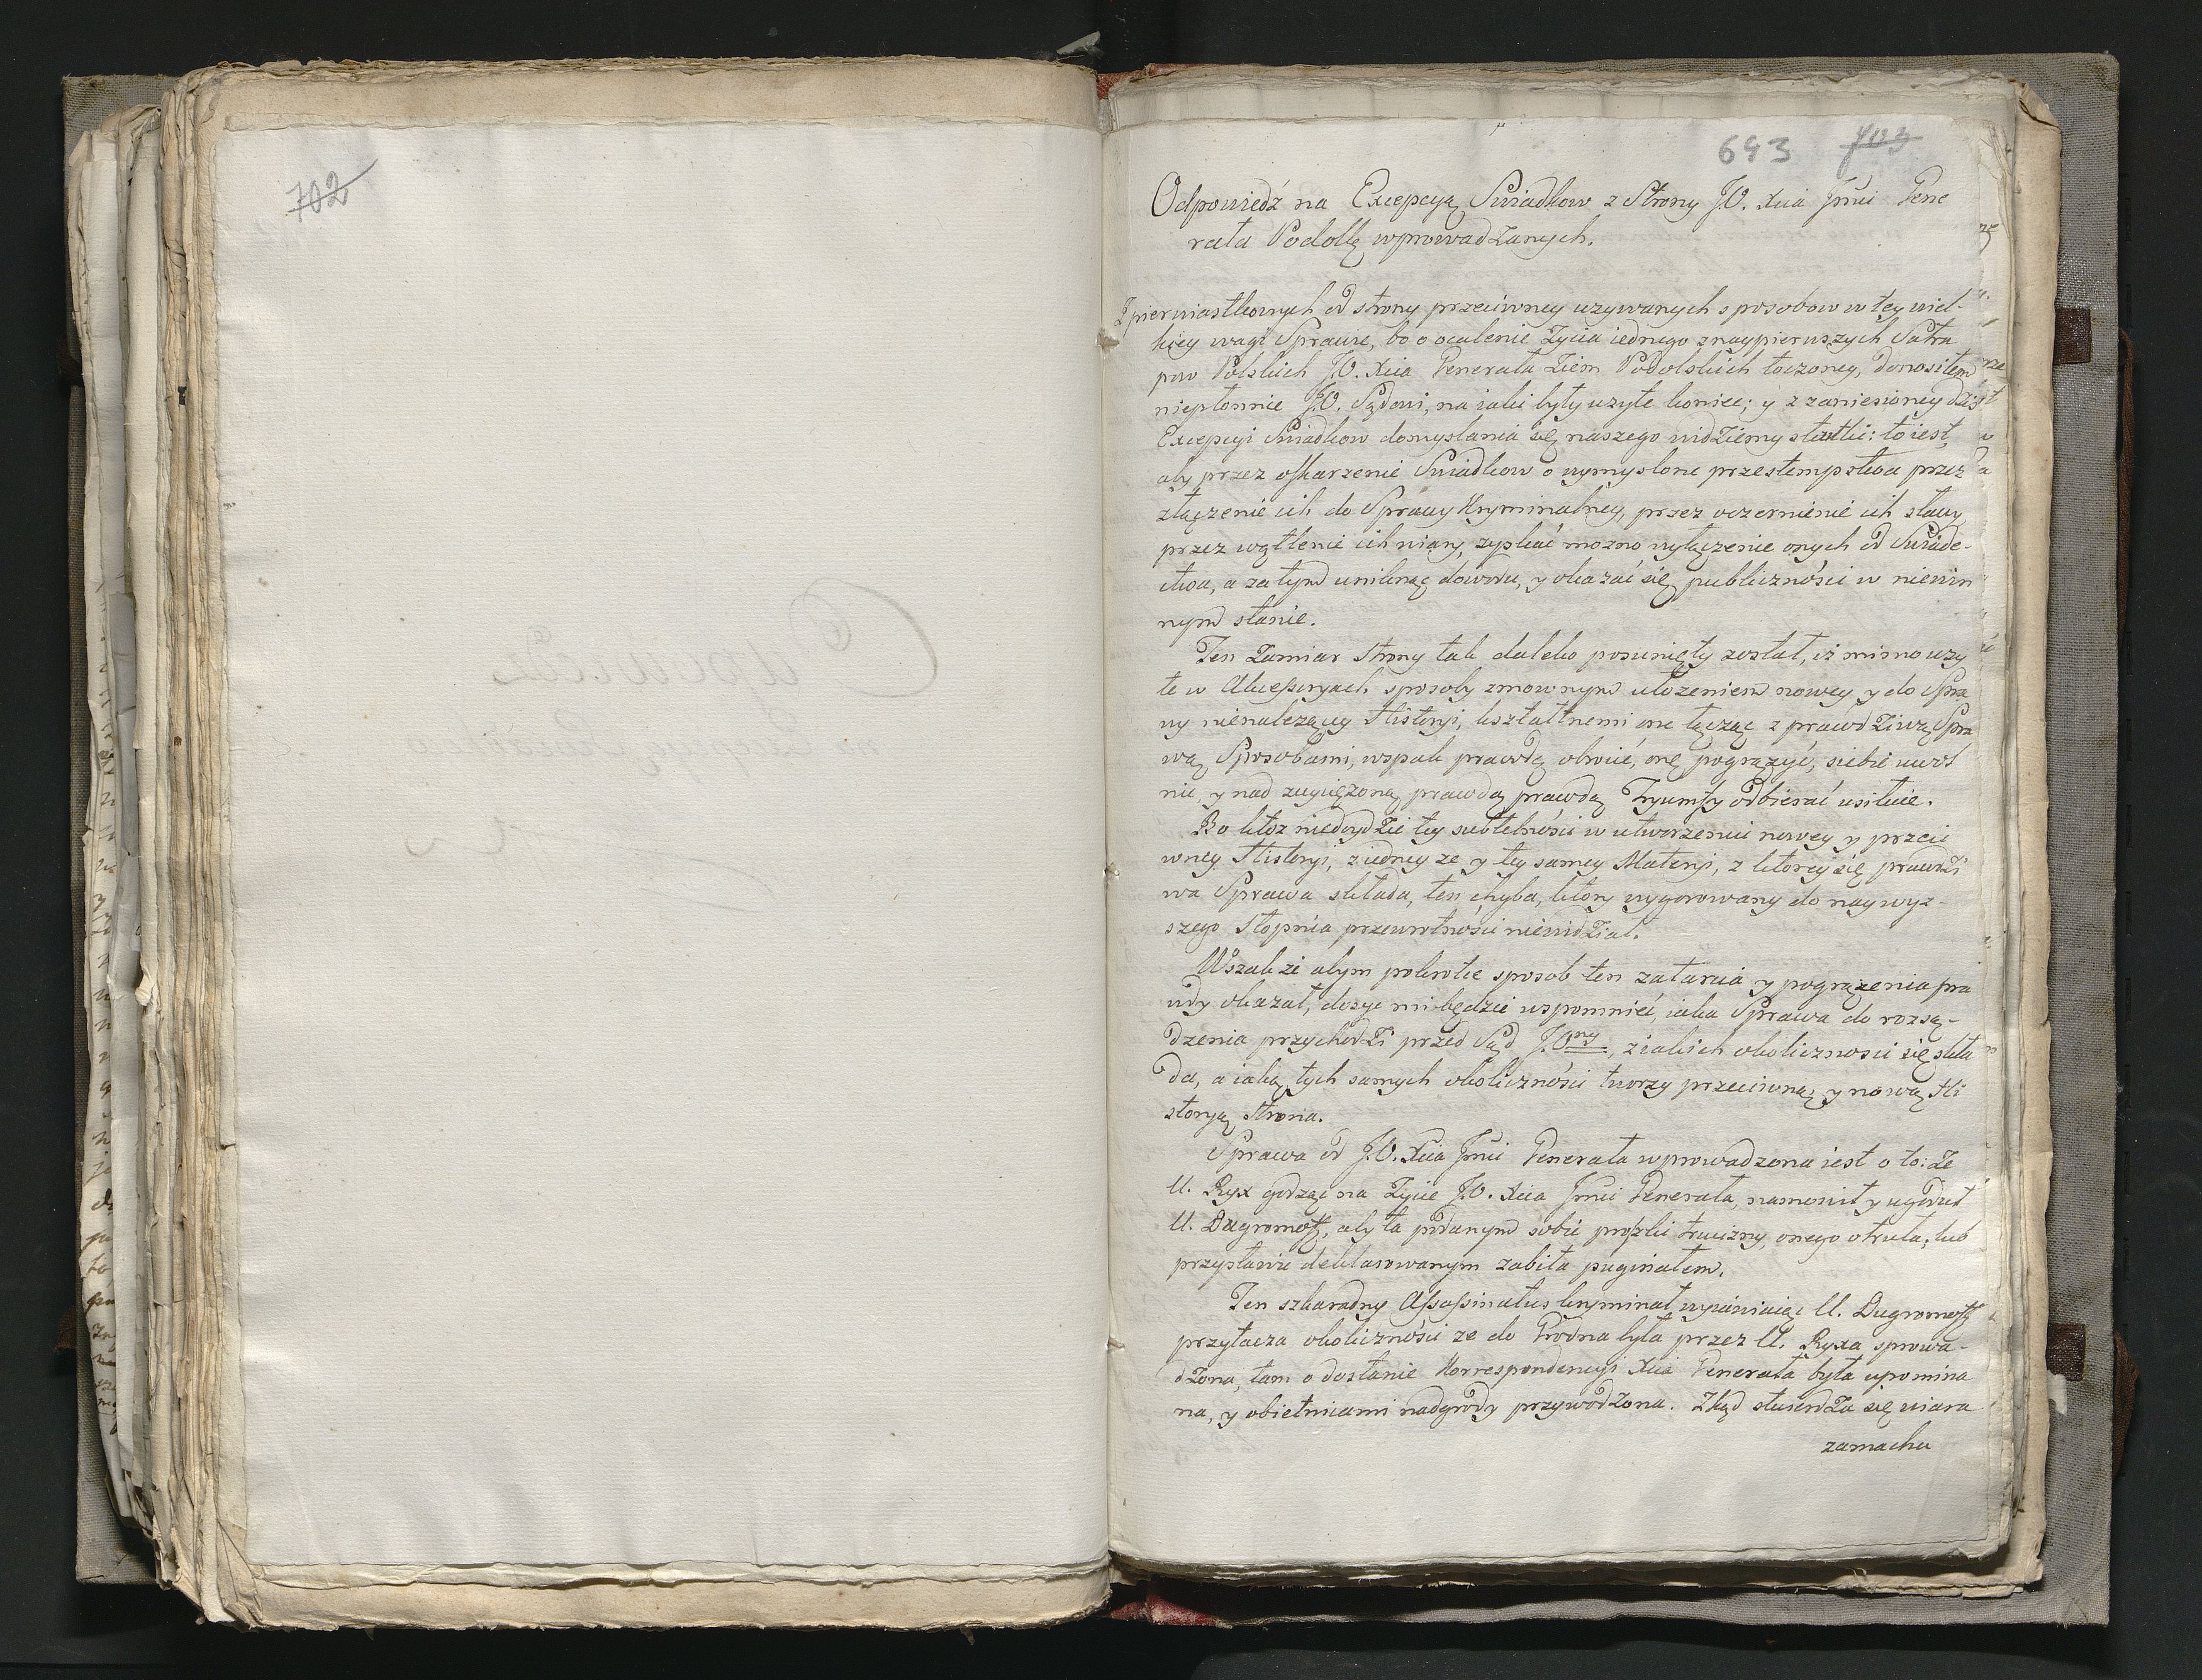 702
693 703
Odpowiedź na Excepcyą Swiadkow z Strony J.O. Xcia Jmci Gene
rała Podolkę wprowadzanych.
Z pierwiastkowych od strony przeciwney uzywanych sposobow w tey wiel-
kiey wagi Sprawie, bo o ocalenie Zycia iednego z naypierwszych Satra
pow Polskich J.O. Xcia Generała Ziem Podolskich toczoney, donosiłem
niepłonnie J.O. Sądowi, na iaki były uzyte koniec; y z zaniesioney dziś
Excepcyi Swiadkow domyslania się naszego widziemy skutki: to iest,
aby przez oskarzenie Swiadkow o wymyslone przestempstwa przez
złączenie ich do Sprawy Kryminalney, przez oczernienie ich sławy
przez wątlenie ich wiary, zyskać mozno wyłączenie onych od Swiade-
ctwa, a zatym uniknąć dowodu, y okazać się publiczności w niewin
nym stanie.
Ten Zamiar Strony tak daleko posunięty został, iż mimo uzy
te w Akcessoryach sposoby zmownym ułozeniem nowey, y do Spra
wy nienalezącey Historyi, kształtnemi one łącząc z prawdziwą Spra
wą Sposobami, wspak prawdę obrocić, onę pogrązyć, siebie uwol
nic, y nad zwyciężoną prawdą prawdą Tryumfy odbierać usiłuie.
Bo ktoz niedoydzie tey subtelności w utworzeniu nowey y przeci
wney Historyi, z iedney ze y tey samey Materyi, z ktorey się prawdzi
wa Sprawa składa, ten chyba, ktory wygorowany do naywyz-
szego Stopnia przewrotności niewidział.
Wszakże abym pokrotce sposob ten zatarcia y pogrązenia pra
wdy okazał, dosyc mi będzie wspomnieć, iaka Sprawa do rozsą-
dzenia przychodzi przed Sąd J.Ony, z iakich okoliczności się skła
da, a iaką tych samych okoliczności tworzy przeciwną y nową Hi
storyą Strona.
Sprawa od J.O. Xcia Jmci Generała wprowadzona iest o to: Ze
U. Ryx godząc na Zycie J.O. Xcia Jmci Generała, namowił y ugodził
U. Dugromoff, aby ta podanym sobie proszki trucizny, onego otruła, lub
przysłanie deklarowanym zabiła puginałem.
Ten szkaradny Assassinatus kryminał wyiawiaiąc U. Dugromoff
przytacza okoliczności ze do Grodna była przez U. Ryxa sprowa-
dzona, tam o dostanie Korrespondencyi Xcia Generała była upomina
na, y obietnicami nadgrody przywodzona. Zkąd stwierdza się wiara
zamachu